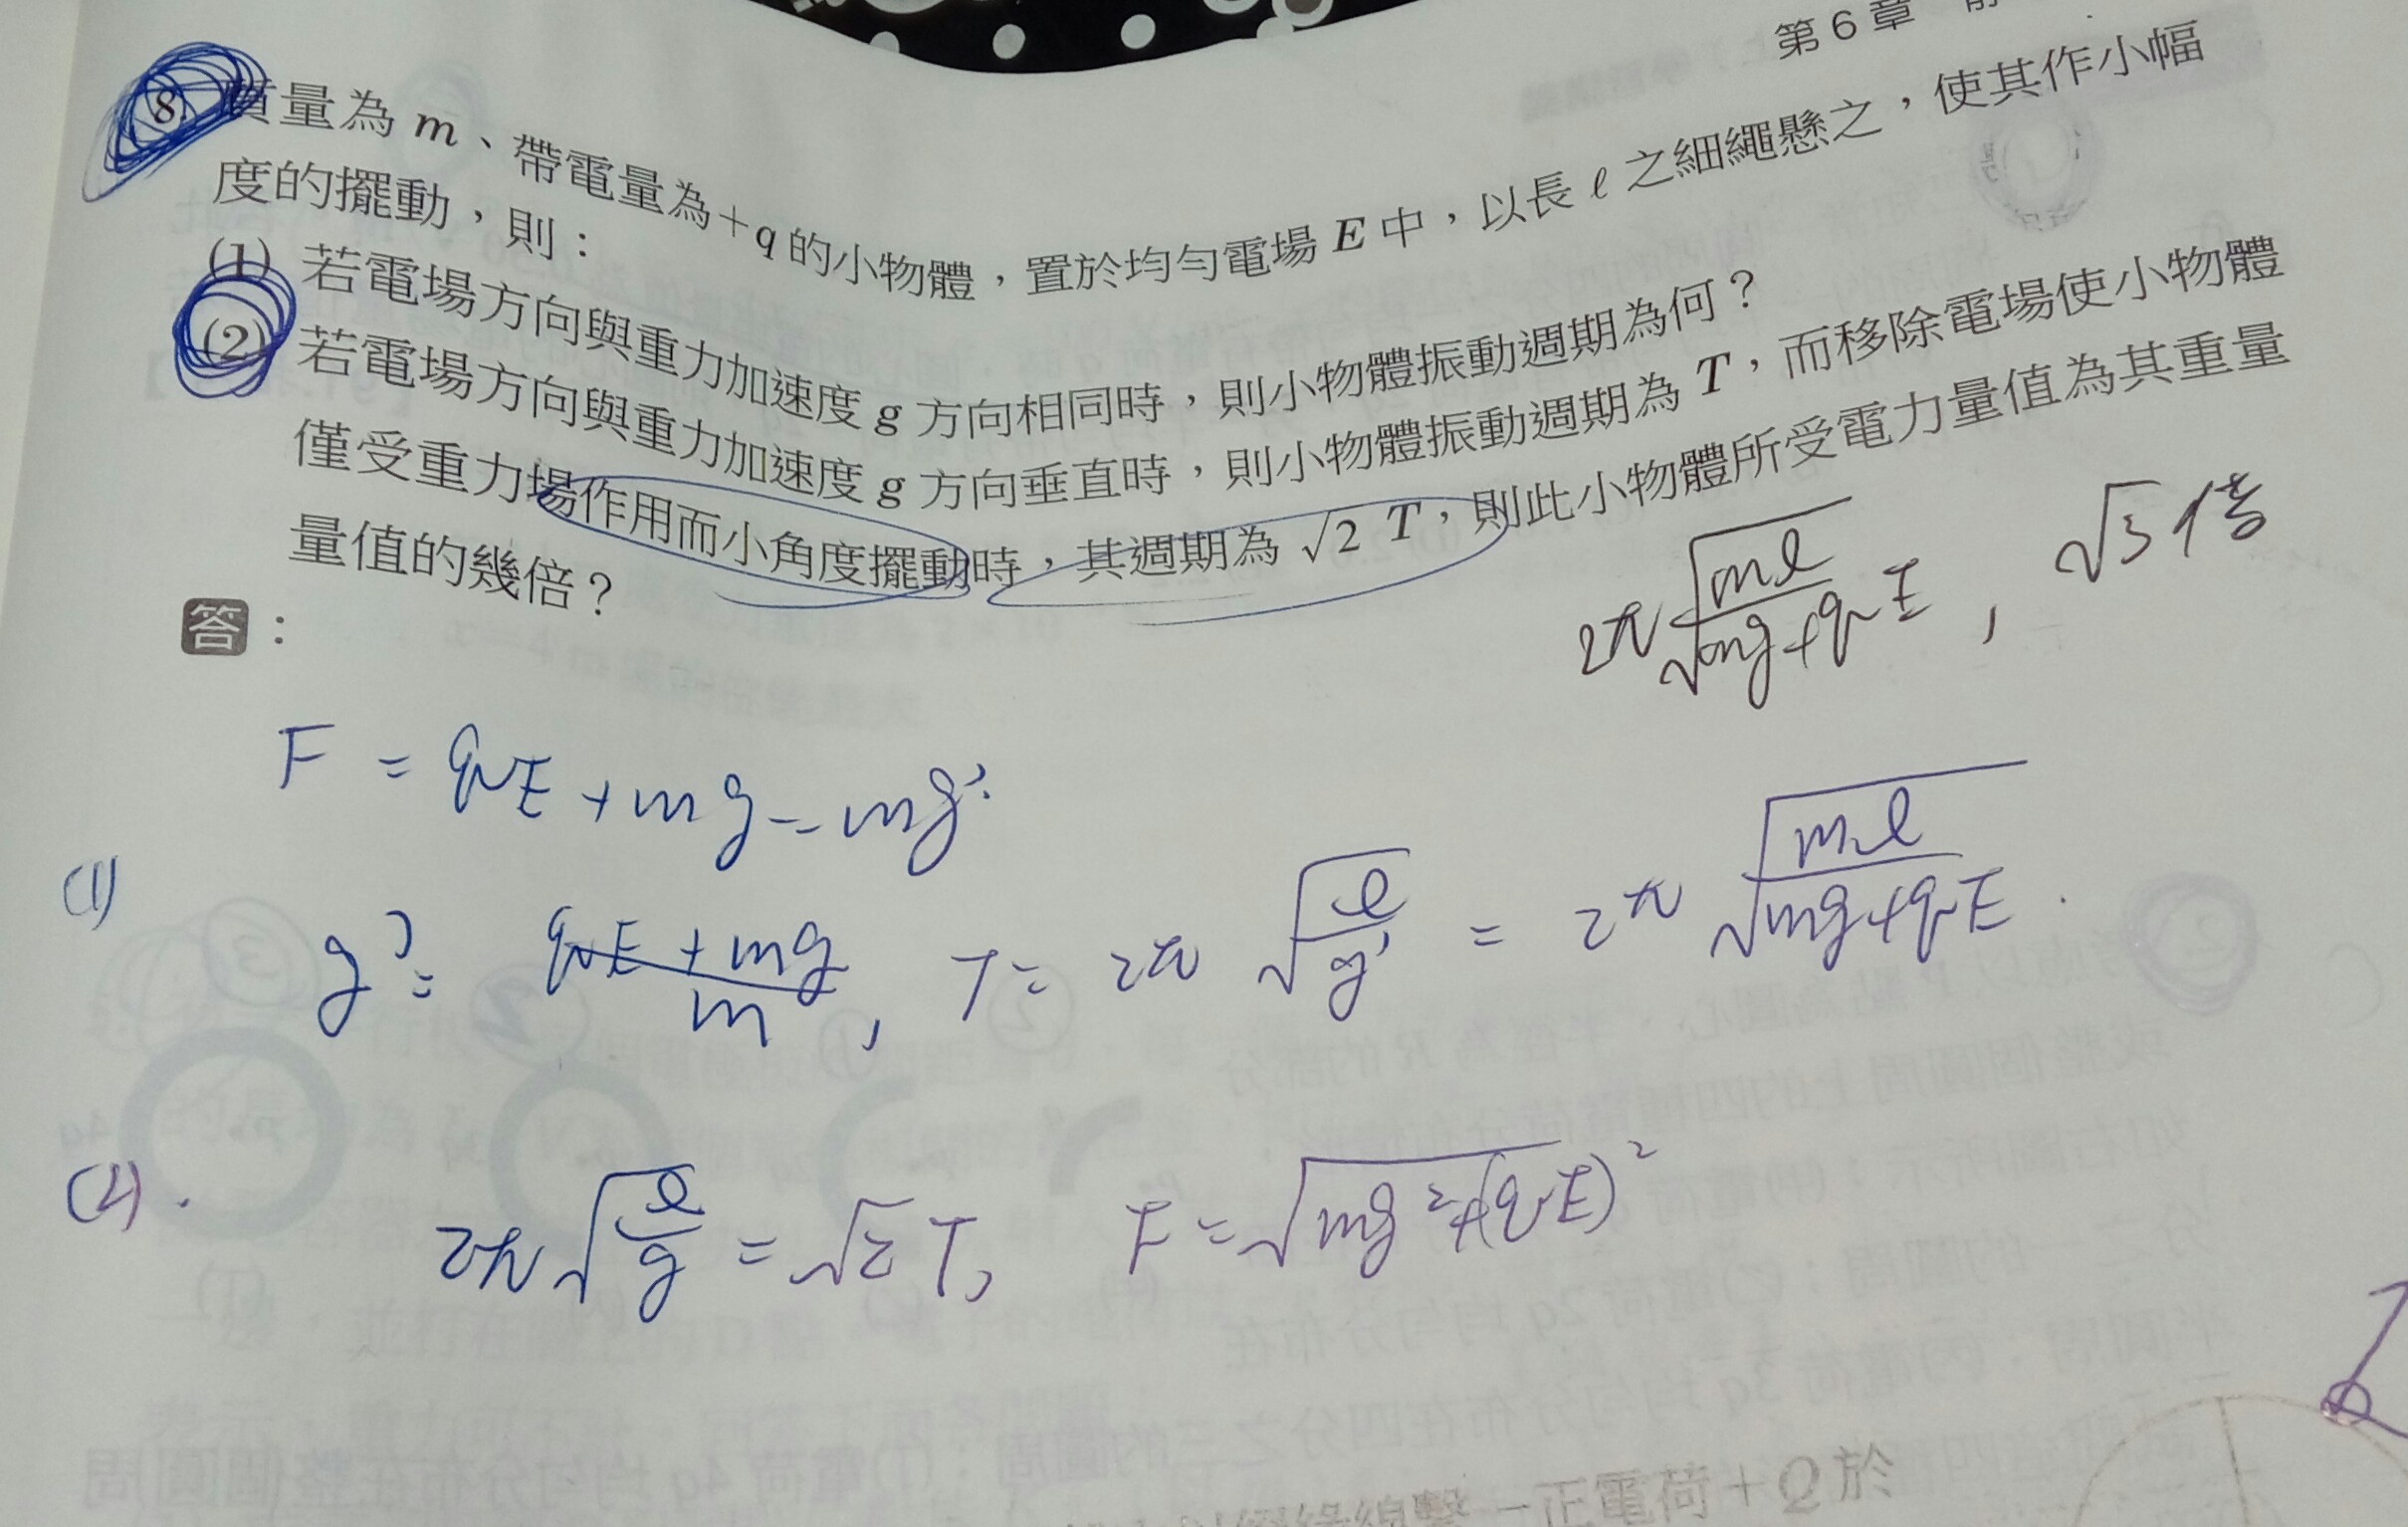 第6章
8. 質量為 m、帶電量為+q的小物體，置於均勻電場 E 中，以長 ℓ 之細繩懸之，使其作小幅
度的擺動，則：
(1) 若電場方向與重力加速度 g 方向相同時，則小物體振動週期為何？
(2) 若電場方向與重力加速度 g 方向垂直時，則小物體振動週期為 T，而移除電場使小物體
僅受重力場作用而小角度擺動時，其週期為 √2 T，則此小物體所受電力量值為其重量
量值的幾倍？
答：
2π√(mℓ/(mg+qE)) , √3倍
F = qE + mg = mg'
(1) g' = (qE + mg)/m , T = 2π √(ℓ/g') = 2π √(mℓ/(mg+qE)) .
(2). 2π√(ℓ/g) = √2 T, F = √(mg²+(qE)²)
一正電荷+Q於